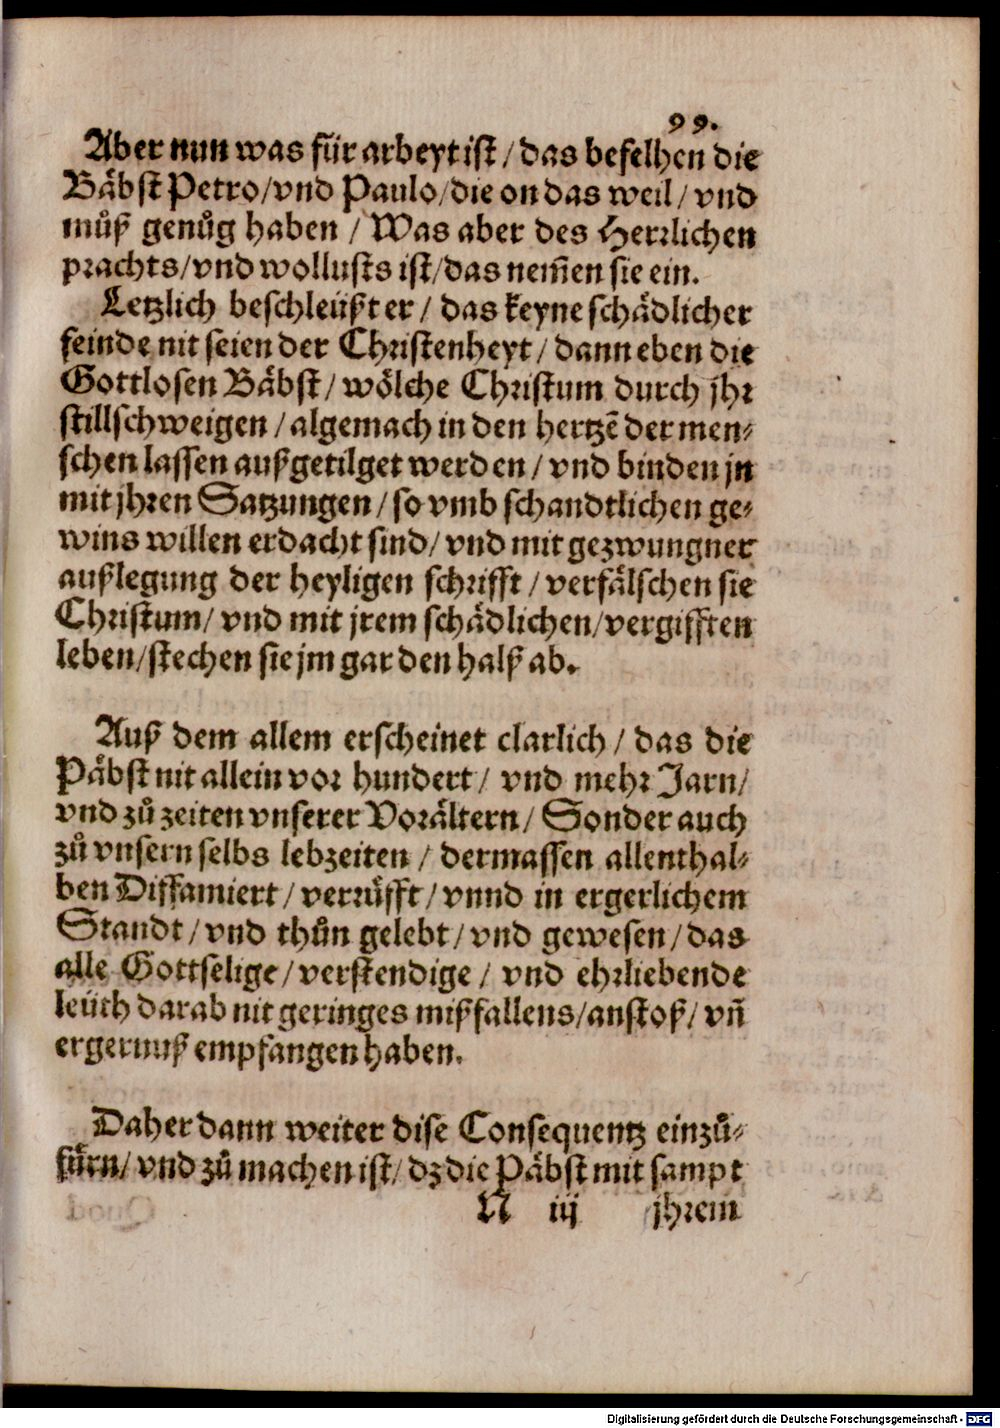 99.
Aber nun was für arbeyt ist / das befelhen die
Bäbst Petro/vnd Paulo/die on das weil / vnd
můß genůg haben / Was aber des Herrlichen
prachts/vnd wollusts ist/das nem̃en sie ein.
Letzlich beschleüßt er / das keyne schädlicher
feinde nit seien der Christenheyt / dann eben die
Gottlosen Bäbst / wölche Christum durch jhr
stillschweigen / algemach in den hertzẽ der men⸗
schen lassen außgetilget werden / vnd binden jn
mit jhren Satzungen / so vmb schandtlichen ge⸗
wins willen erdacht sind/ vnd mit gezwungner
außlegung der heyligen schrifft / verfälschen sie
Christum/ vnd mit jrem schädlichen/vergifften
leben/stechen sie jm gar den halß ab.
Auß dem allem erscheinet clarlich / das die
Päbst nit allein vor hundert/ vnd mehr Jarn/
vnd zů zeiten vnserer Vorältern/ Sonder auch
zů vnsern selbs lebzeiten / dermassen allenthal⸗
ben Diffamiert / verrüfft / vnnd in ergerlichem
Standt / vnd thůn gelebt / vnd gewesen / das
alle Gottselige / verstendige / vnd ehrliebende
leüth darab nit geringes mißfallens/anstoß/ vñ
ergernuß empfangen haben.
Daher dann weiter dise Consequentz einzů⸗
fürn/ vnd zů machen ist/ dz die Päbst mit sampt
N iij jhrem
Digitalisierung gefördert durch die Deutsche Forschungsgemeinschaft - DFG